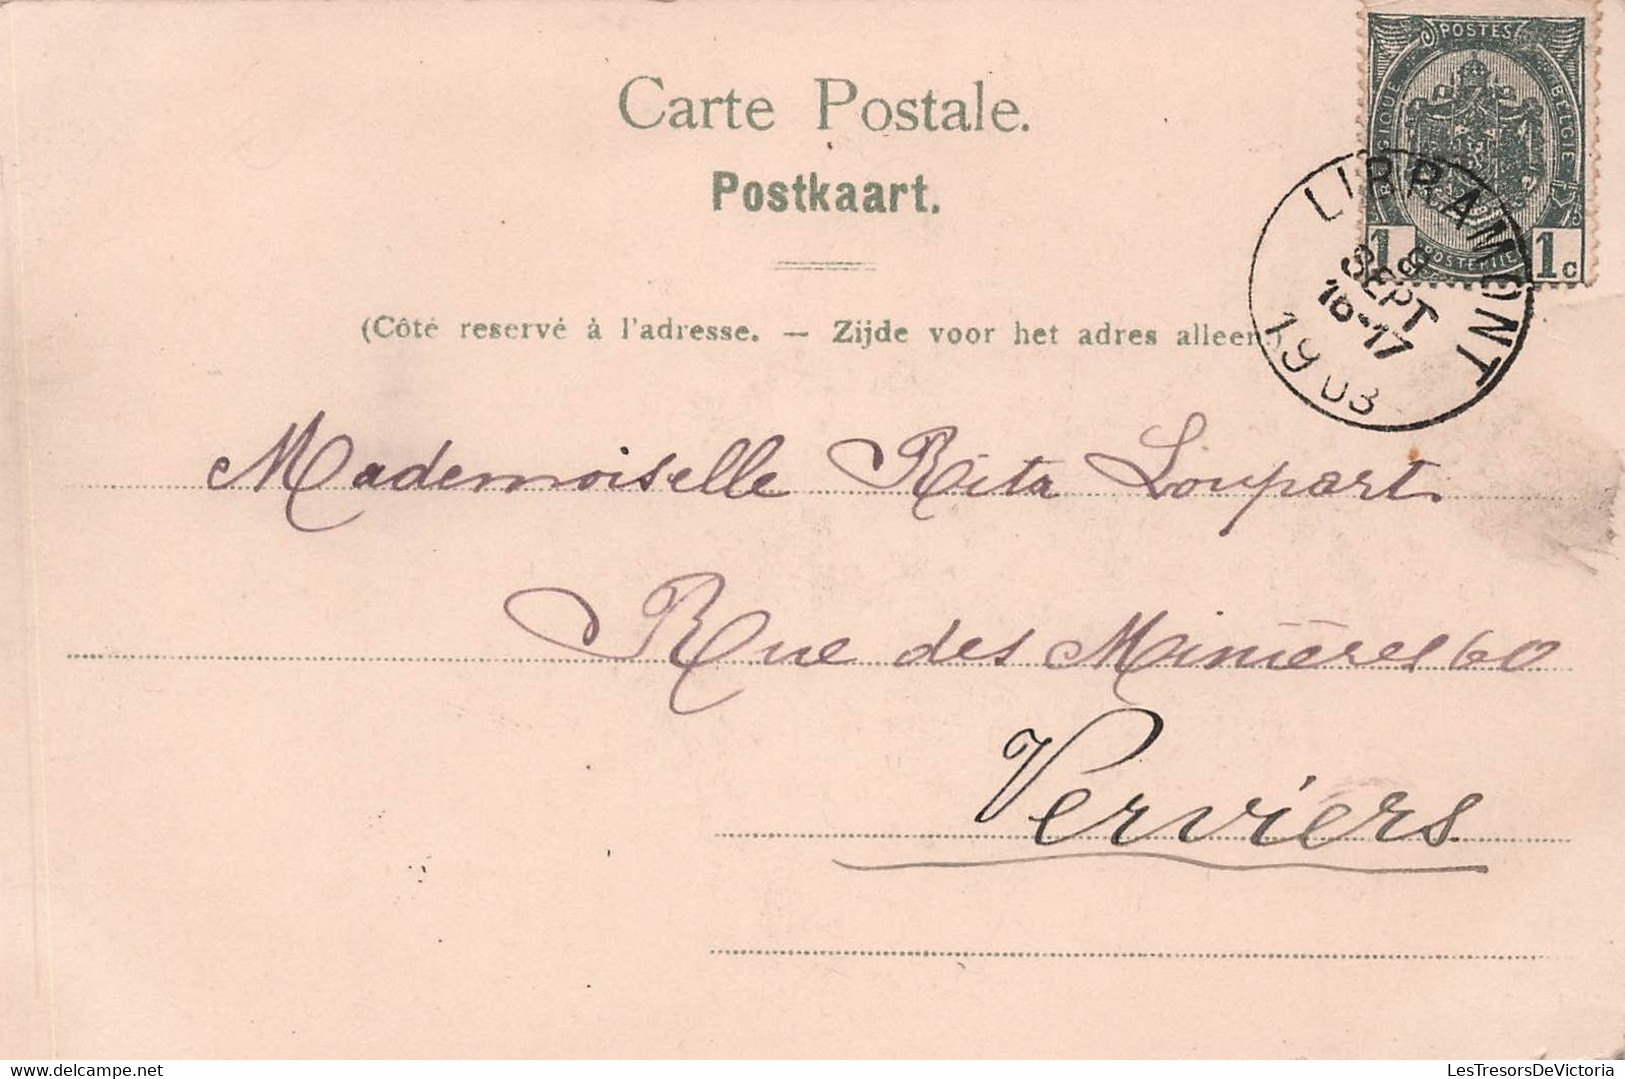 POSTES
BELGIQUE BELGIE
POSTERIJEN
1 1c
Carte Postale.
Postkaart.
LIBRAMONT
9
SEPT
16-17
1903
(Côté reservé à l'adresse. — Zijde voor het adres alleen.)
Mademoiselle Rita Loupart
Rue des Minières 60
Verviers
delcampe.net
LesTresorsDeVictoria